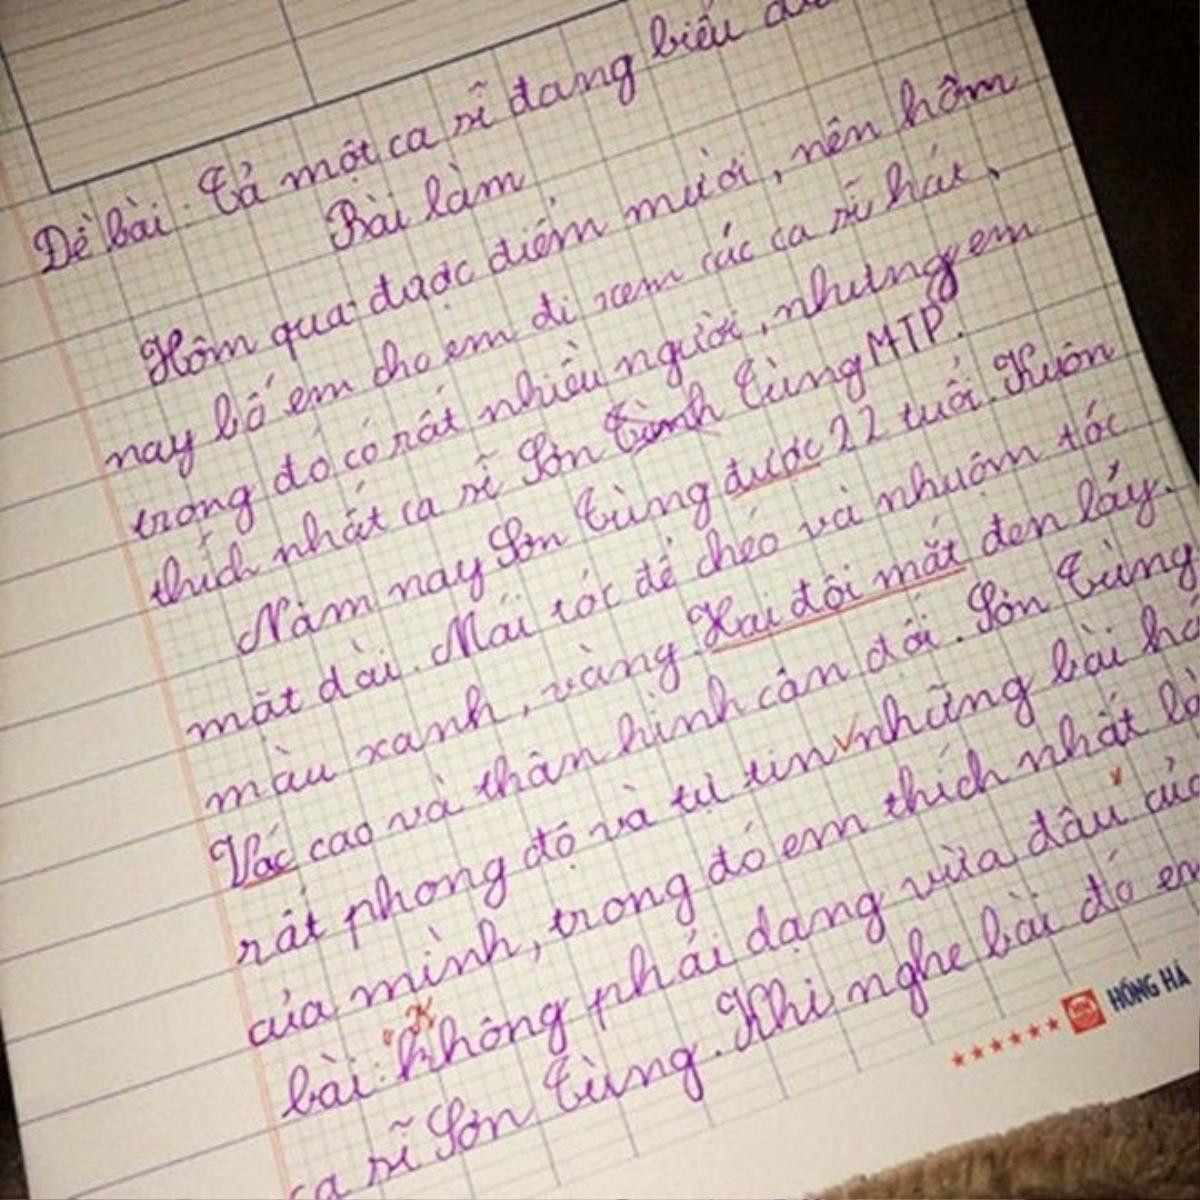 Đề bài: Tả một ca sĩ đang biểu
Bài làm
Hôm qua được điểm mười, nên hôm
nay bố em cho em đi xem các ca sĩ hát,
trong đó có rất nhiều người, nhưng em
thích nhất ca sĩ Sơn Tùng MTP.
Năm nay Sơn Tùng được 22 tuổi. Khuôn
mặt dài. Mái tóc để chéo và nhuộm tóc
màu xanh, vàng. Hai đội mắt đen láy.
Vác cao và thân hình cân đối. Sơn Tùng
rất phong độ và tự tin những bài há
của mình, trong đó em thích nhất là
bài: "Không phải dạng vừa đâu của
ca sĩ Sơn Tùng. Khi nghe bài đó em
HỒNG HÀ